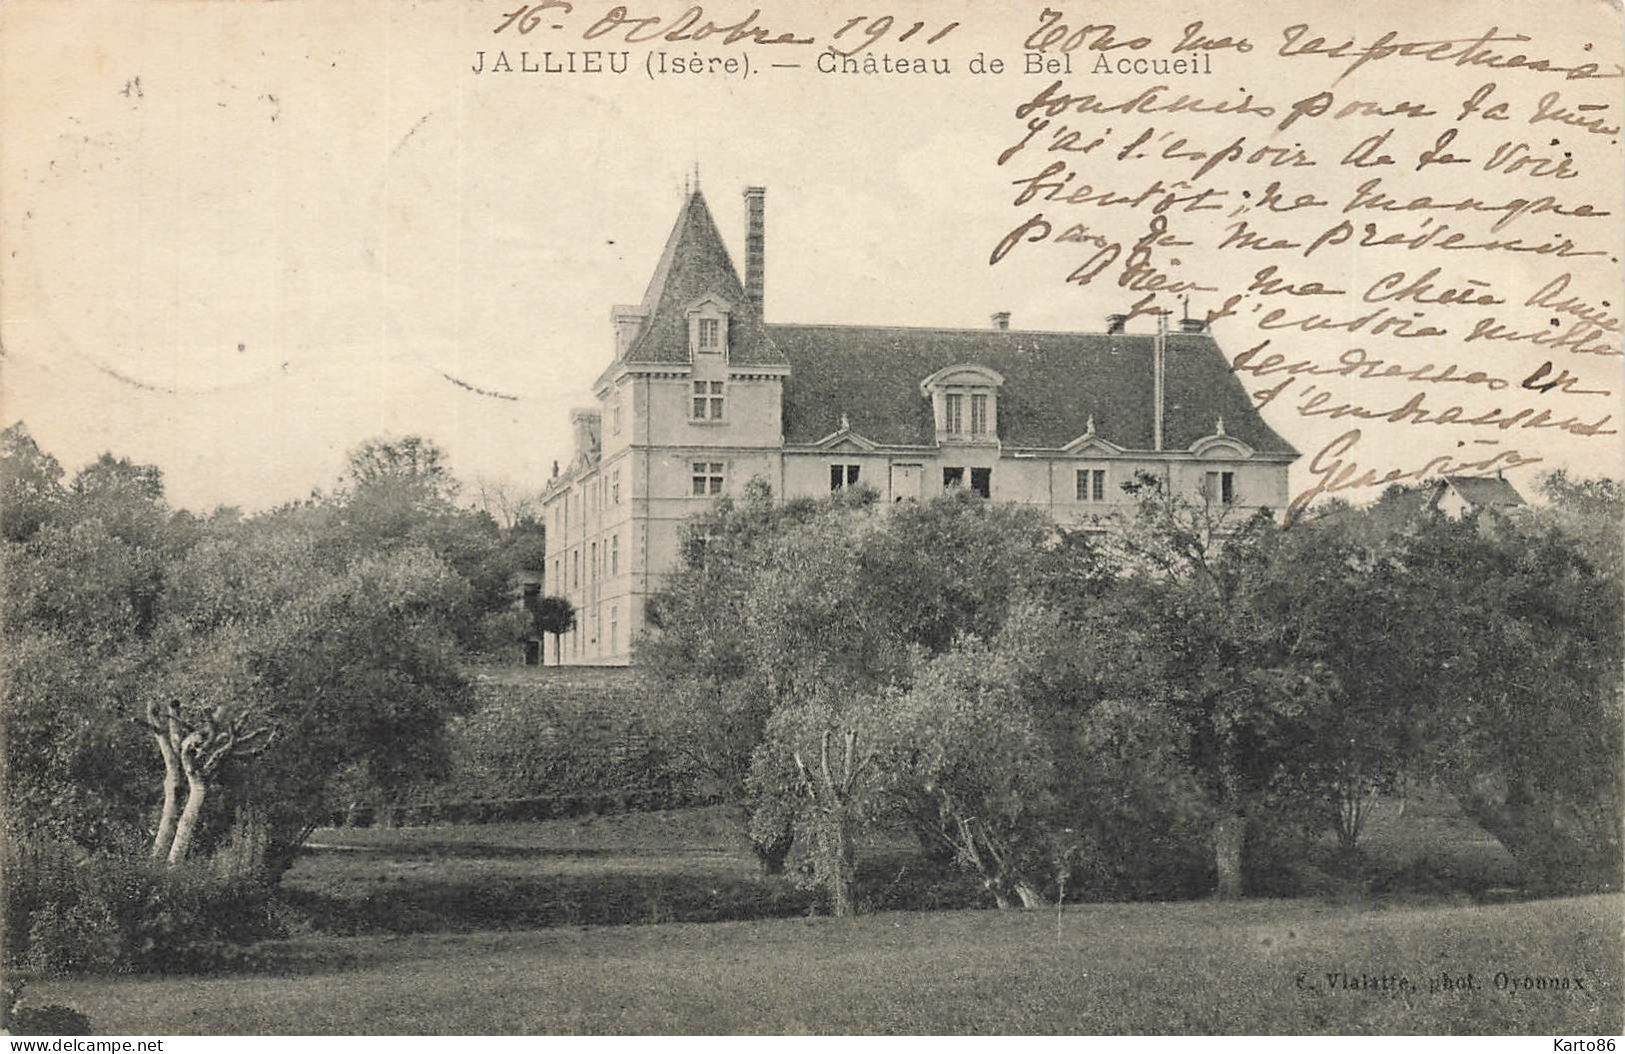 16 Octobre 1911
JALLIEU (Isère). — Château de Bel Accueil
Tous mes respectueux
souvenirs pour ta mère.
J'ai l'espoir de te voir
bientôt; ne manque
pas de me prévenir.
Adieu ma chère Amie
je t'envoie mille
tendresses en
t'embrassant
Geneviève
E. Vialatte, phot. Oyonnax
delcampe.net
Karto86